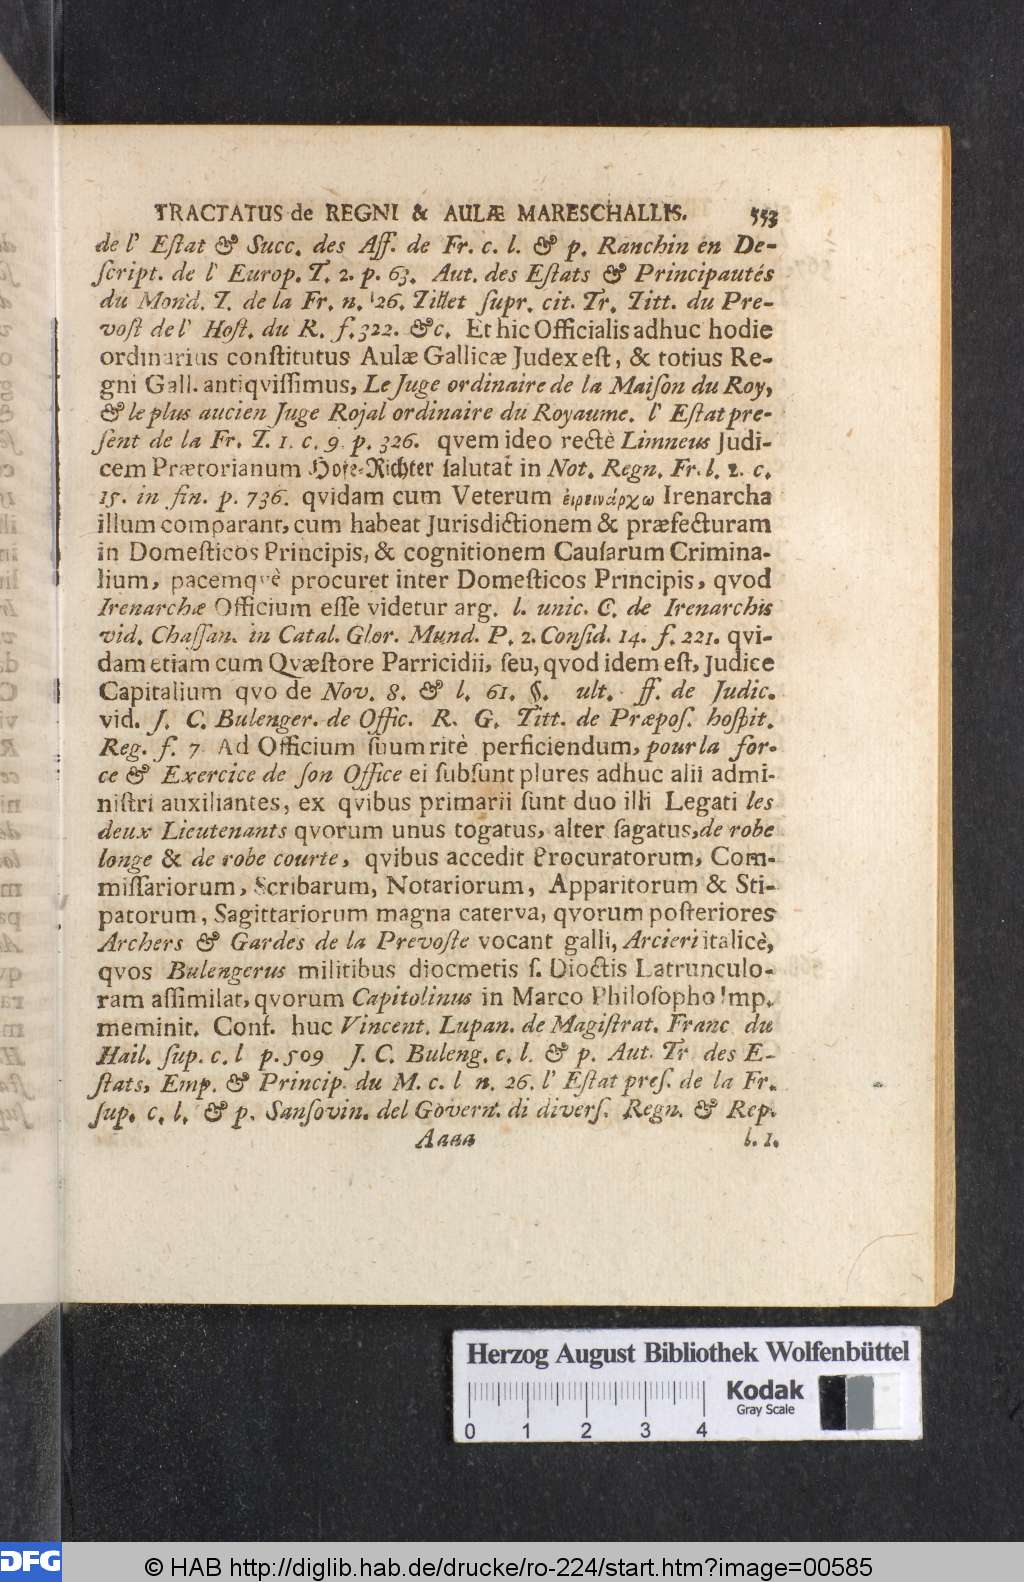 TRACTATUS de REGNI & AULÆ MARESCHALLIS. 553
de l' Eſtat & Succ. des Aff. de Fr. c. l. & p. Ranchin en De-
ſcript. de l' Europ. T. 2. p. 63. Aut. des Eſtats & Principautés
du Mond. T. de la Fr. n. 26. Tillet ſupr. cit. Tr. Titt. du Pre-
voſt de l' Hoſt. du R. f. 322. &c. Et hic Officialis adhuc hodie
ordinarius conſtitutus Aulæ Gallicæ Judex eſt, & totius Re-
gni Gall. antiqviſſimus, Le Juge ordinaire de la Maiſon du Roy,
& le plus aucien Juge Rojal ordinaire du Royaume. l' Eſtat pre-
ſent de la Fr. T. 1. c. 9. p. 326. qvem ideo rectè Limneus Judi-
cem Prætorianum Hofe-Richter ſalutat in Not. Regn. Fr. l. 2. c.
15. in fin. p. 736. qvidam cum Veterum ἐιρεινάρχω Irenarcha
illum comparant, cum habeat Jurisdictionem & præfecturam
in Domeſticos Principis, & cognitionem Cauſarum Crimina-
lium, pacemqvè procuret inter Domeſticos Principis, qvod
Irenarchæ Officium eſſe videtur arg. l. unic. C. de Irenarchis
vid. Chaſſan. in Catal. Glor. Mund. P. 2. Conſid. 14. f. 221. qvi-
dam etiam cum Qvæſtore Parricidii, ſeu, qvod idem eſt, Judice
Capitalium qvo de Nov. 8. & l. 61. §. ult. ff. de Judic.
vid. J. C. Bulenger. de Offic. R. G. Titt. de Præpoſ. hoſpit.
Reg. f. 7 Ad Officium ſuum ritè perficiendum, pour la for-
ce & Exercice de ſon Office ei ſubſunt plures adhuc alii admi-
niſtri auxiliantes, ex qvibus primarii ſunt duo illi Legati les
deux Lieutenants qvorum unus togatus, alter ſagatus, de robe
longe & de robe courte, qvibus accedit Procuratorum, Com-
miſſariorum, Scribarum, Notariorum, Apparitorum & Sti-
patorum, Sagittariorum magna caterva, qvorum poſteriores
Archers & Gardes de la Prevoſte vocant galli, Arcieri italicè,
qvos Bulengerus militibus diocmetis ſ. Dioctis Latrunculo-
ram aſſimilat, qvorum Capitolinus in Marco Philoſopho Imp.
meminit. Conf. huc Vincent. Lupan. de Magiſtrat. Franc du
Hail. ſup. c. l p. 509 J. C. Buleng. c. l. & p. Aut. Tr des E-
ſtats, Emp. & Princip. du M. c. l n. 26. l' Eſtat preſ. de la Fr.
ſup. c. l. & p. Sanſovin. del Govern. di diverſ. Regn. & Rep.
Aaaa l. 1.
Herzog August Bibliothek Wolfenbüttel
Kodak
Gray Scale
0 1 2 3 4
DFG © HAB http://diglib.hab.de/drucke/ro-224/start.htm?image=00585